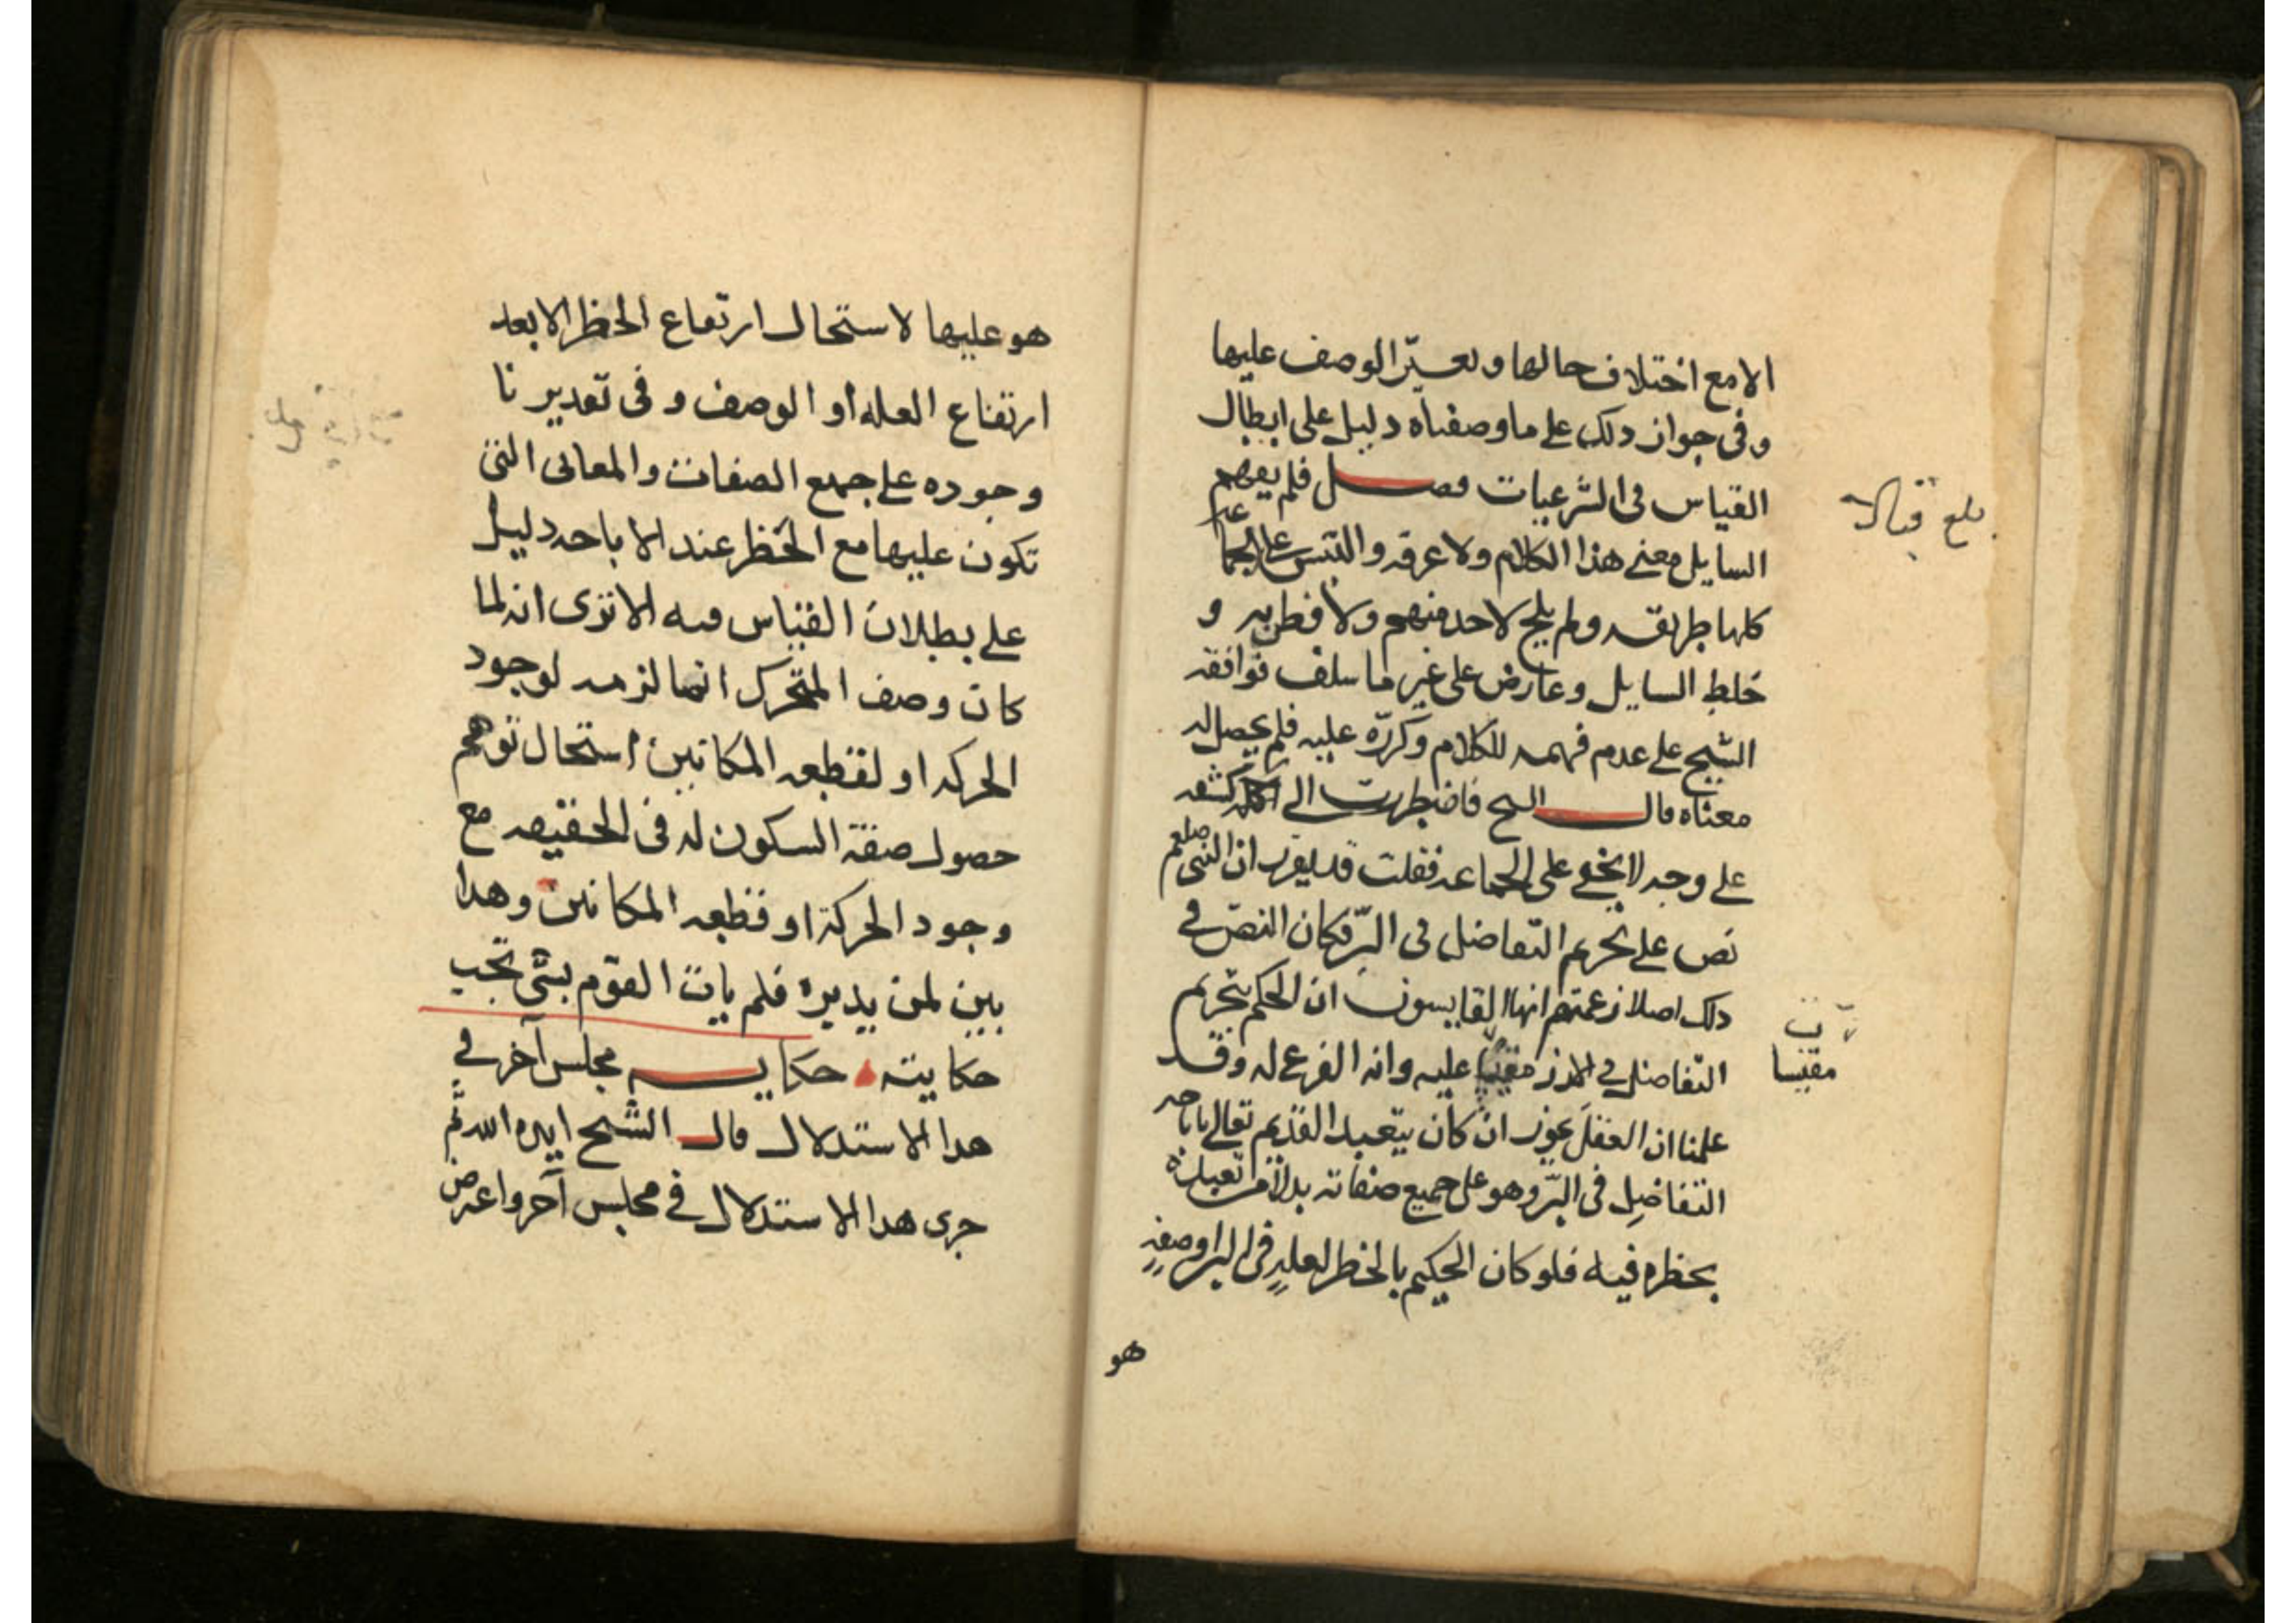 الا مع اختلاف حالها وتغيّر الوصف عليها
وفى جواز ذلك على ما وصفناه دليل على ابطال
القياس فى الشرعيات فصل فلم يفهم
السايل معنى هذا الكلام ولا عرفه والتبس على الجماعة
كلها طريقه ولم يلح لاحد منهم ولا فطن به و
خلط السايل وعارض على غير ما سلف فوافقه
الشيخ على عدم فهمه للكلام وكرّره عليه فلم يحصل له
معناه قال الشيخ فاضطررت الى كشفه
على وجه لا يخفى على الجماعه فقلت ان النبى صلعم
نص على تحريم التفاضل فى البرّ فكان النصّ فى
ذلك اصلا زعمتم ايها القايسون ان الحكم بتحريم
التفاضل فى الارز مقيسا عليه وانه الفرع له وقد
علمنا ان العقل يجوز ان كان يتعبد القديم تعالى باباحه
التفاضل فى البرّ وهو على جميع صفاته بدلا من تعبده
بحظره فيه فلو كان الحكم بالحظر لعلةٍ فى البر او صفةٍ
هو
بلغ قبالا
ن
مقيسا
هو عليها لاستحال ارتفاع الحظر الا بعد
ارتفاع العله أو الوصف و فى تقديرنا
وجوده على جميع الصفات والمعانى التى
تكون عليها مع الحظر عند الاباحه دليل
على بطلان القياس فيه الا ترى انه لما
كان وصف المتحرك انما لزمه لوجود
الحركه او لقطعه المكانين استحال توهم
حصول صفة السكون له فى الحقيقه مع
وجود الحركة او قطعه المكانين وهذا
بين لمن يديره فلم يات القوم بشئ تجب
حكايته حكايـه مجلس آخر فى
هذا الاستدلال قال الشيخ ايده الله ثم
جرى هذا الاستدلال فى مجلس آخر واعترض